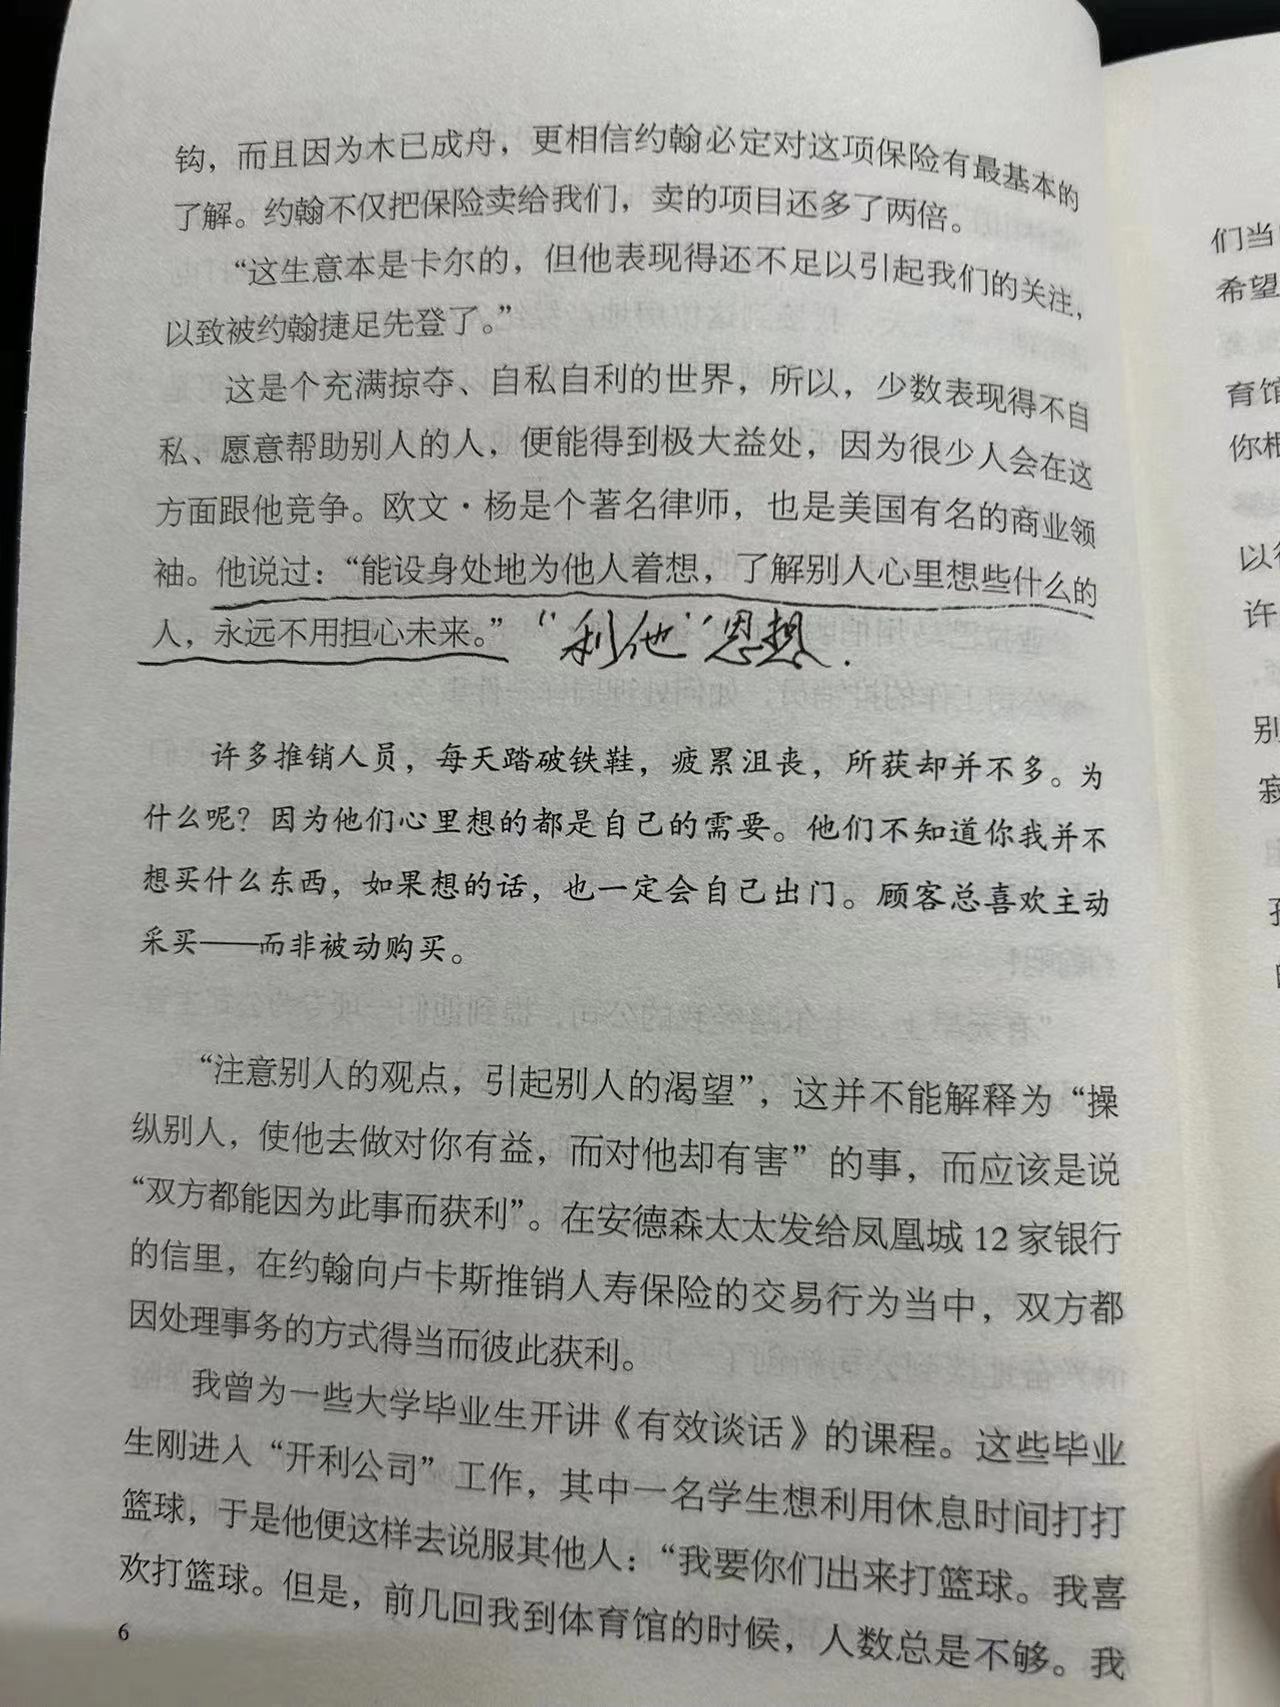 钩，而且因为木已成舟，更相信约翰必定对这项保险有最基本的
了解。约翰不仅把保险卖给我们，卖的项目还多了两倍。
“这生意本是卡尔的，但他表现得还不足以引起我们的关注，
以致被约翰捷足先登了。”
这是个充满掠夺、自私自利的世界，所以，少数表现得不自
私、愿意帮助别人的人，便能得到极大益处，因为很少人会在这
方面跟他竞争。欧文·杨是个著名律师，也是美国有名的商业领
袖。他说过：“能设身处地为他人着想，了解别人心里想些什么的
人，永远不用担心未来。” “利他”思想.
许多推销人员，每天踏破铁鞋，疲累沮丧，所获却并不多。为
什么呢？因为他们心里想的都是自己的需要。他们不知道你我并不
想买什么东西，如果想的话，也一定会自己出门。顾客总喜欢主动
采买——而非被动购买。
“注意别人的观点，引起别人的渴望”，这并不能解释为“操
纵别人，使他去做对你有益，而对他却有害”的事，而应该是说
“双方都能因为此事而获利”。在安德森太太发给凤凰城 12 家银行
的信里，在约翰向卢卡斯推销人寿保险的交易行为当中，双方都
因处理事务的方式得当而彼此获利。
我曾为一些大学毕业生开讲《有效谈话》的课程。这些毕业
生刚进入“开利公司”工作，其中一名学生想利用休息时间打打
篮球，于是他便这样去说服其他人：“我要你们出来打篮球。我喜
欢打篮球。但是，前几回我到体育馆的时候，人数总是不够。我
6
们当
希望
育馆
你相
许
别